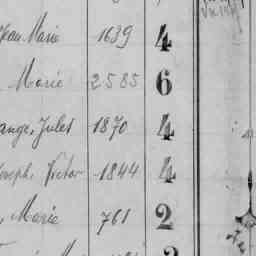 Jean Marie 1639 4
Marie 2585 6
ange, Jules 1870 4
oseph, Victor 1844 4
, Marie 761 2